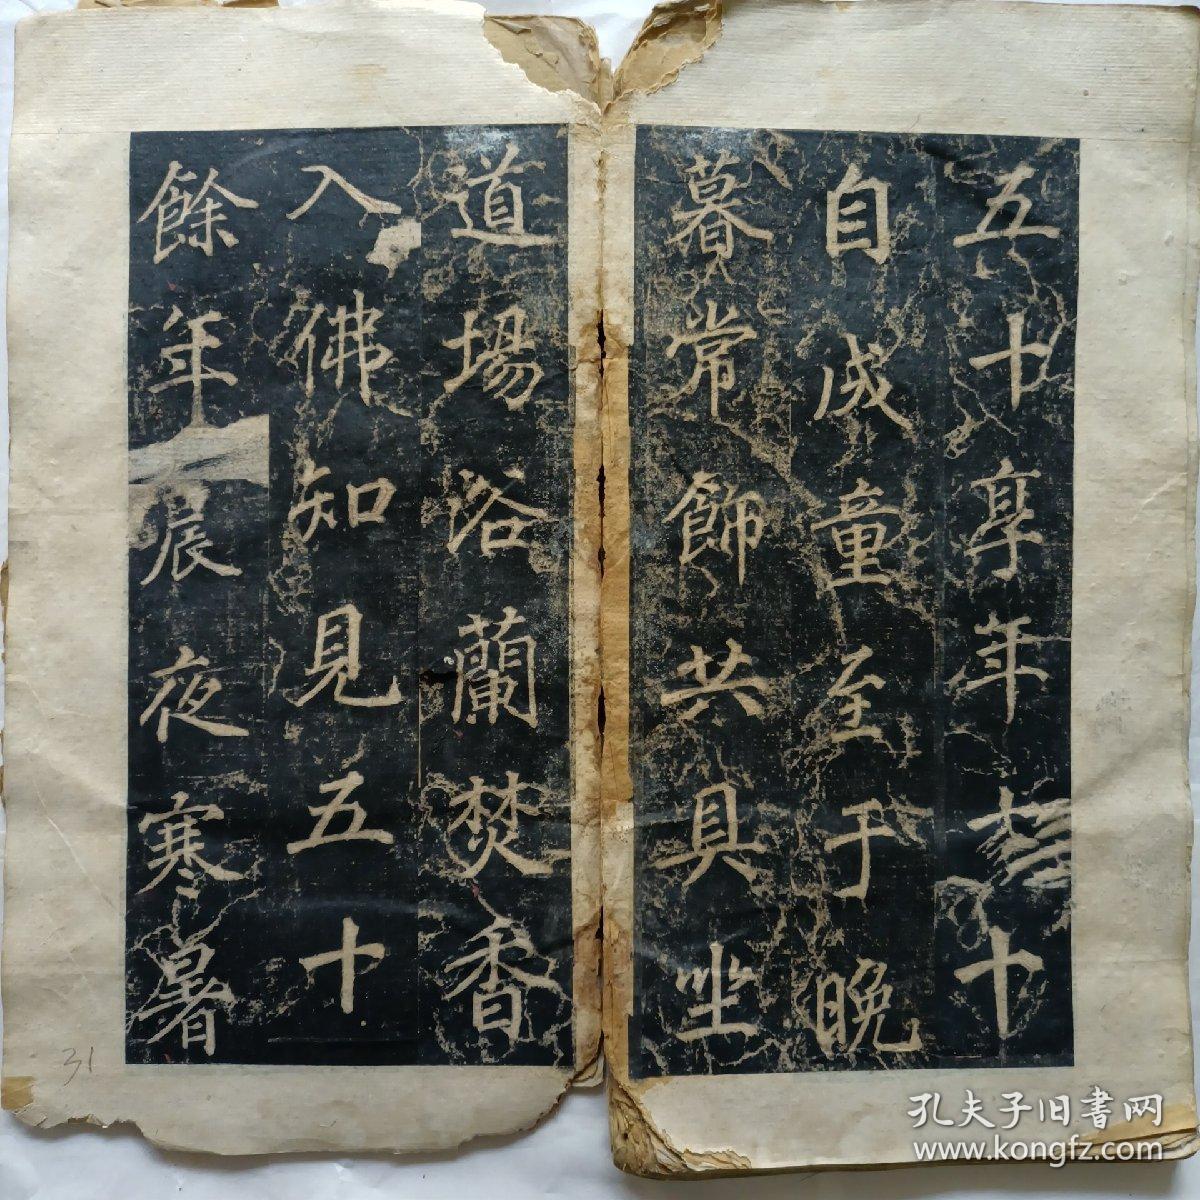 五十享年十
自成童至于晚
暮常飾共具坐
道場浴蘭焚香
入佛知見五十
餘年晨夜寒暑
31
孔夫子旧書网
www.kongfz.com